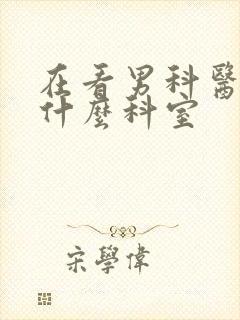 在看男科醫
什麼科室
宋學偉